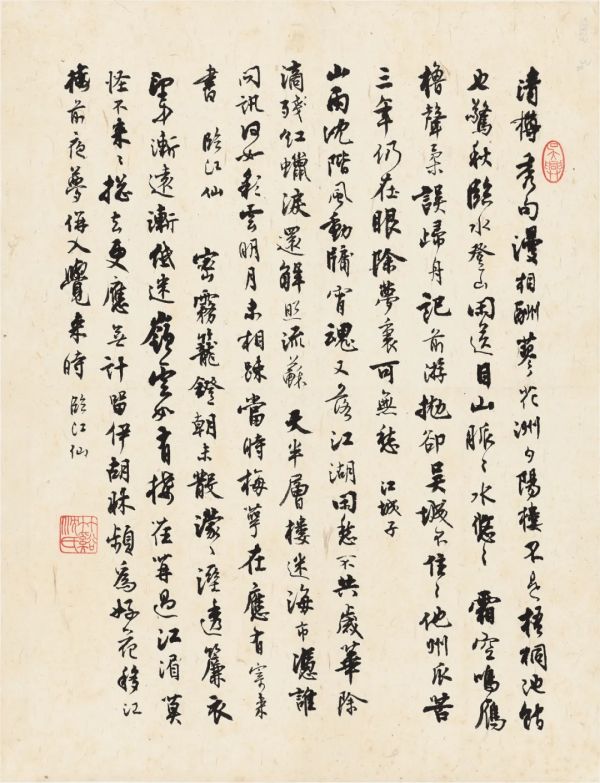 清樽秀句漫相酬蓼花洲夕陽樓不是梧桐池館
也驚秋臨水登山閑送目山脈〻水悠〻 霜空鳴雁
櫓聲柔誤歸舟記前游拋卻吳城不住〻他州瓜苦
三年仍在眼除夢裏可無愁 江城子
山雨沈階風動牖宵魂又落江湖閑愁不共歲華除
滴殘紅蠟淚還解照流蘇 天半層樓迷海市憑誰
問訊何如彩雲明月未相疎當時梅萼在應有寄來
書 臨江仙 密霧籠鐙朝未散濛〻溼透簾衣
望中漸遠漸低迷嶺雲 有 過江湄莫
怪不來〻總去更應無計留伊胡牀頻為好花移江
梅前夜夢併入覺來時 臨江仙
吳興
竹谿沈氏